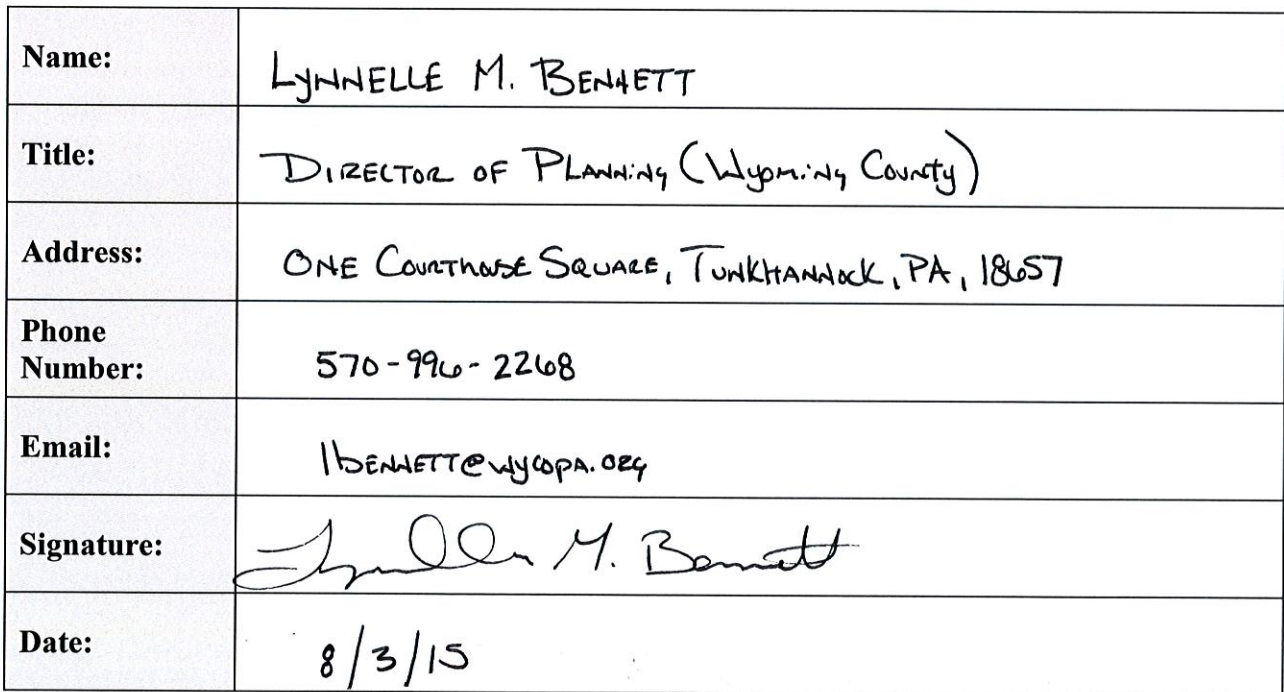 Name: Lynnelle M. Bennett
Title: Director of Planning (Wyoming County)
Address: One Courthouse Square, Tunkhannock, PA, 18657
Phone
Number: 570-996-2268
Email: lbennett@wycopa.org
Signature: Lynnelle M. Bennett
Date: 8/3/15